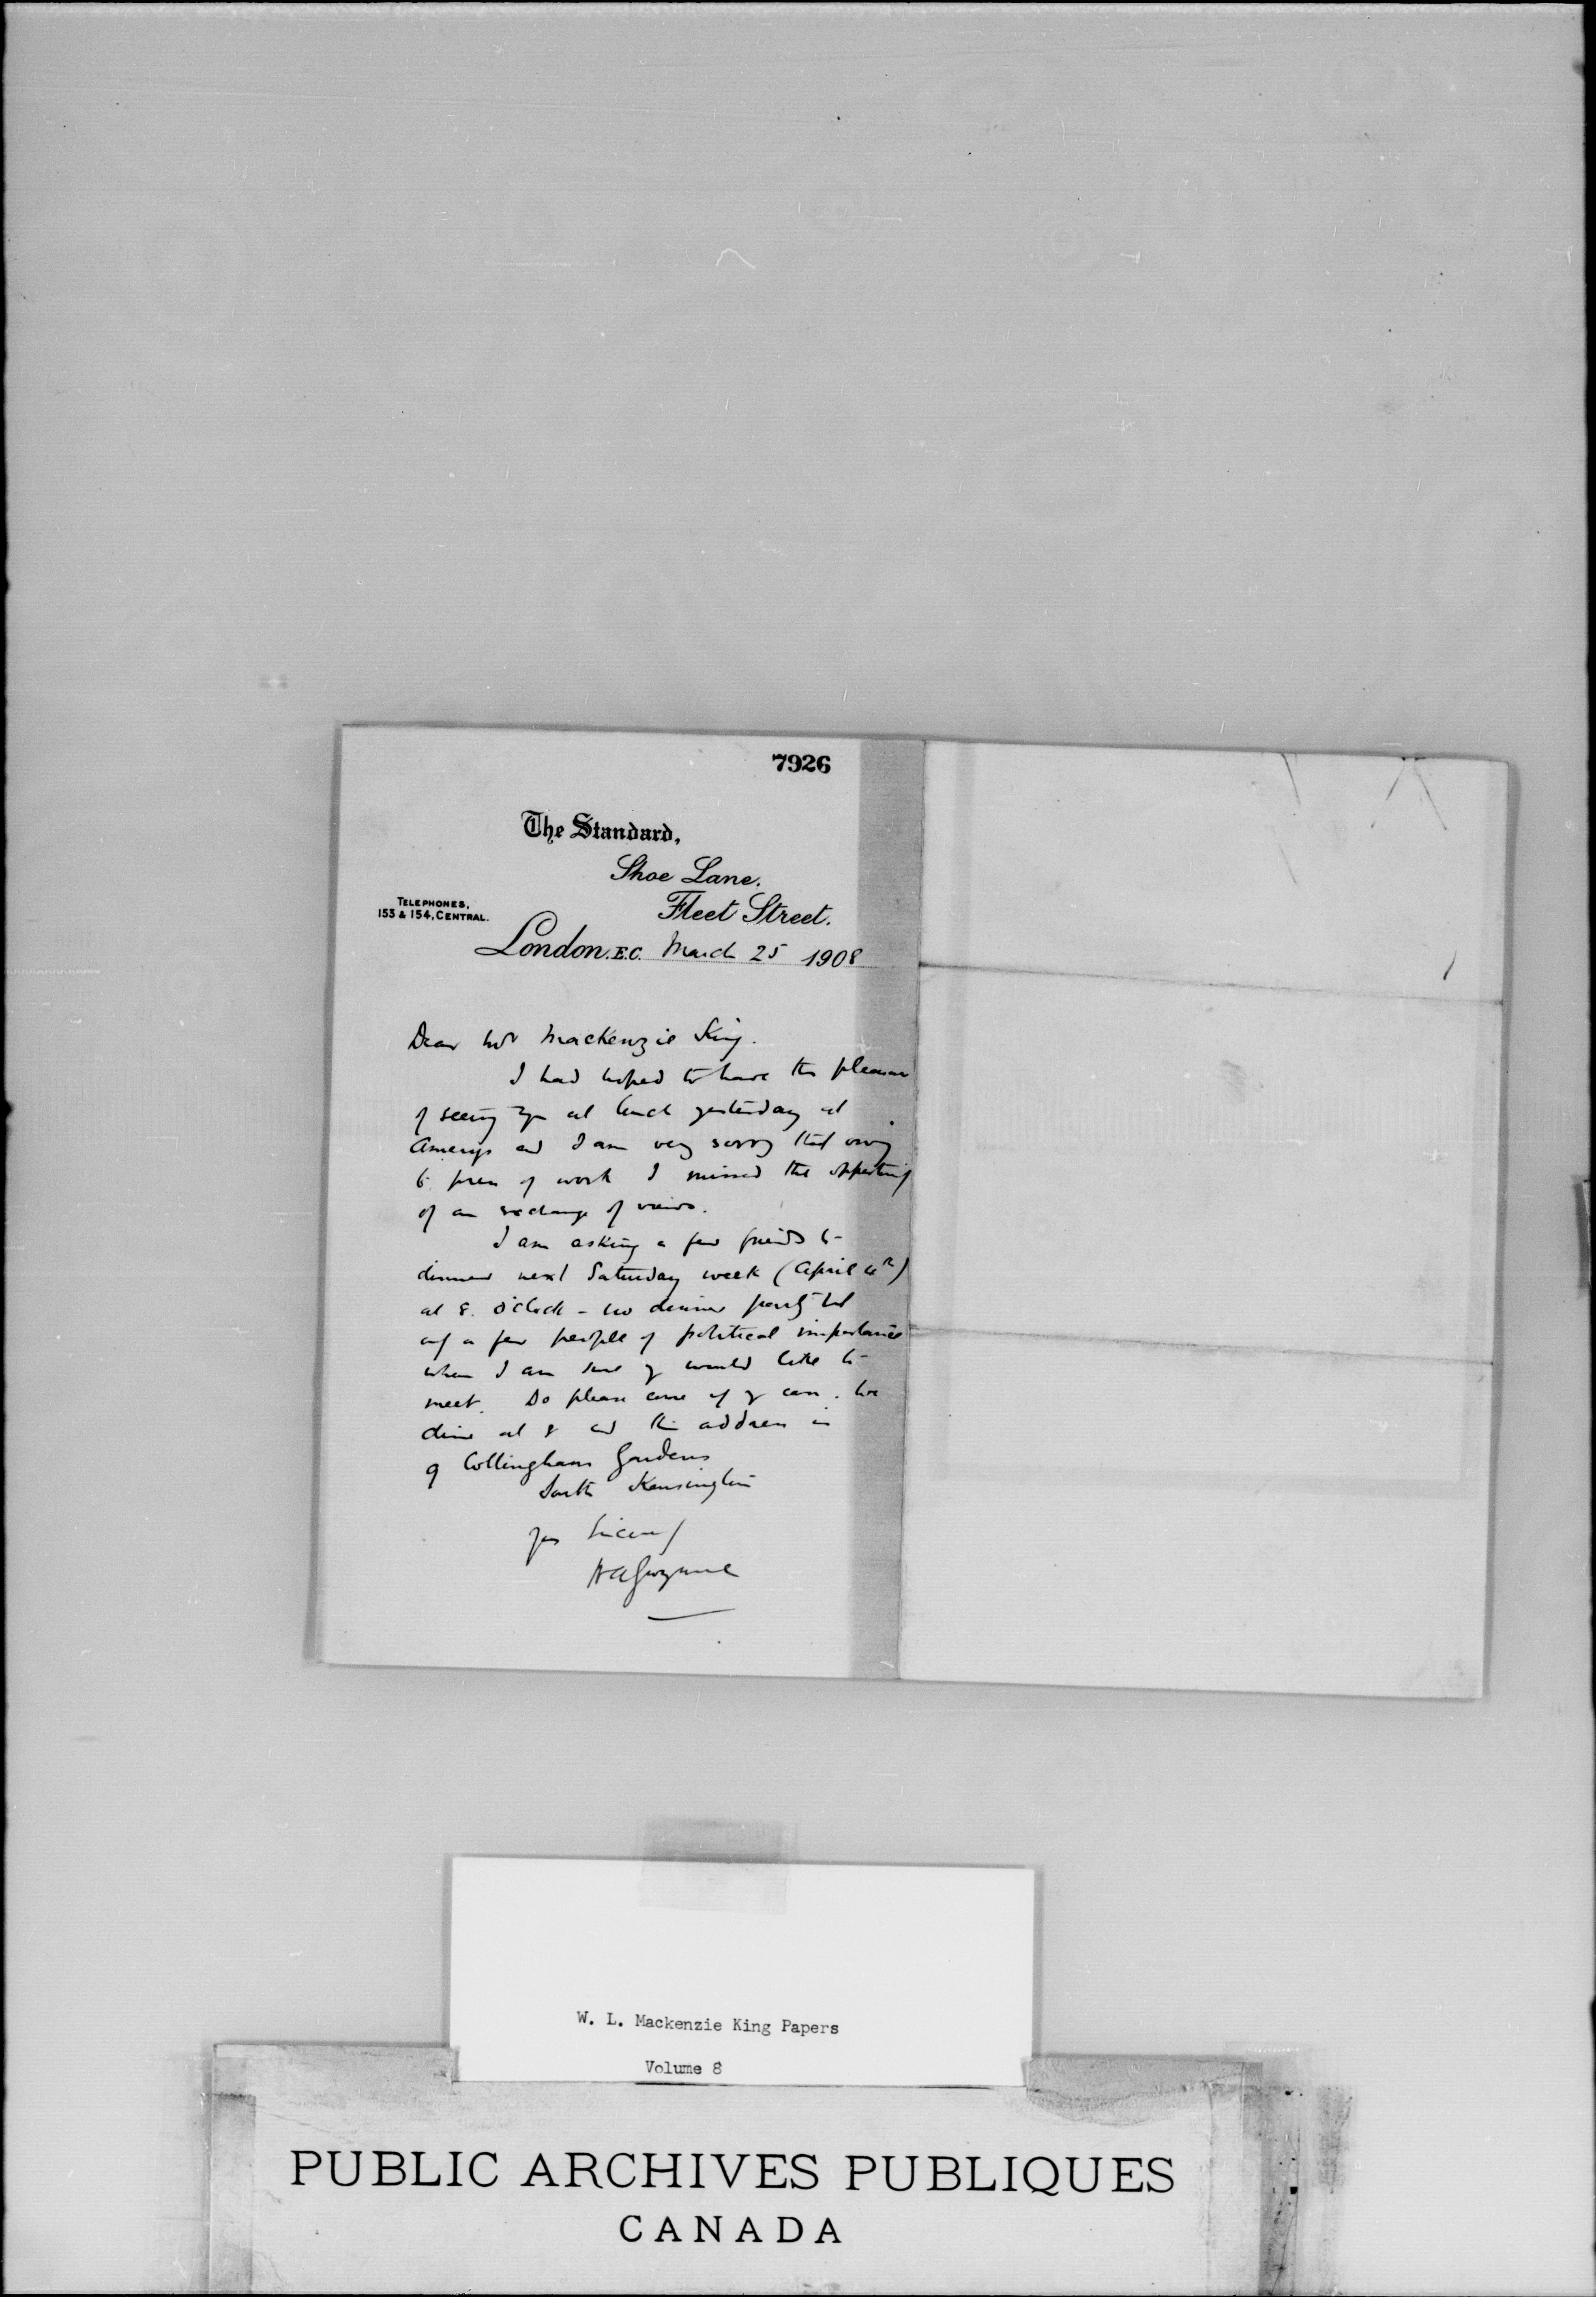 7926
The Standard,
Shoe Lane.
TELEPHONES,
153 & 154, CENTRAL.
Fleet Street.
London. E.C. March 25 1908
Dear Mr Mackenzie King.
I had hoped to have the pleasure
of seeing you at lunch yesterday at
Amerys and I am very sorry that owing
to press of work I missed the opportunity
of an exchange of views.
I am asking a few friends to
dinner next Saturday week (April 4th)
at 8. o'clock - no dinner party but
only a few people of political importance
whom I am sure you would like to
meet. Do please come if you can. We
dine at 8 and the address is
9 Collingham Gardens
South Kensington
Yours Sincerely
H A Gwynne
W. L. Mackenzie King Papers
Volume 8
PUBLIC ARCHIVES PUBLIQUES
CANADA